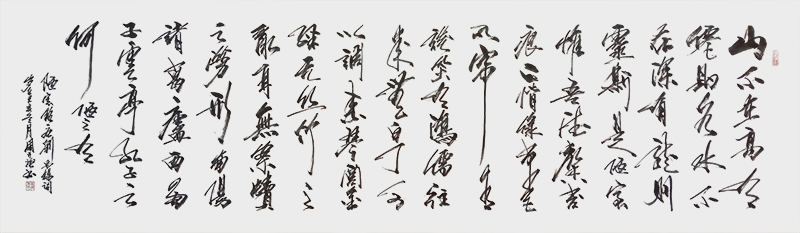 山不在高有
僊則名水不
在深有龍則
靈斯是陋室
惟吾德馨苔
痕上階綠草色
入帘青
談笑有鴻儒往
來無白丁可
以調素琴閱金
經无絲竹之
亂耳無案牘
之勞形南陽
諸葛廬西蜀
子雲亭孔子云
何陋之有
陋室銘 劉禹錫詞